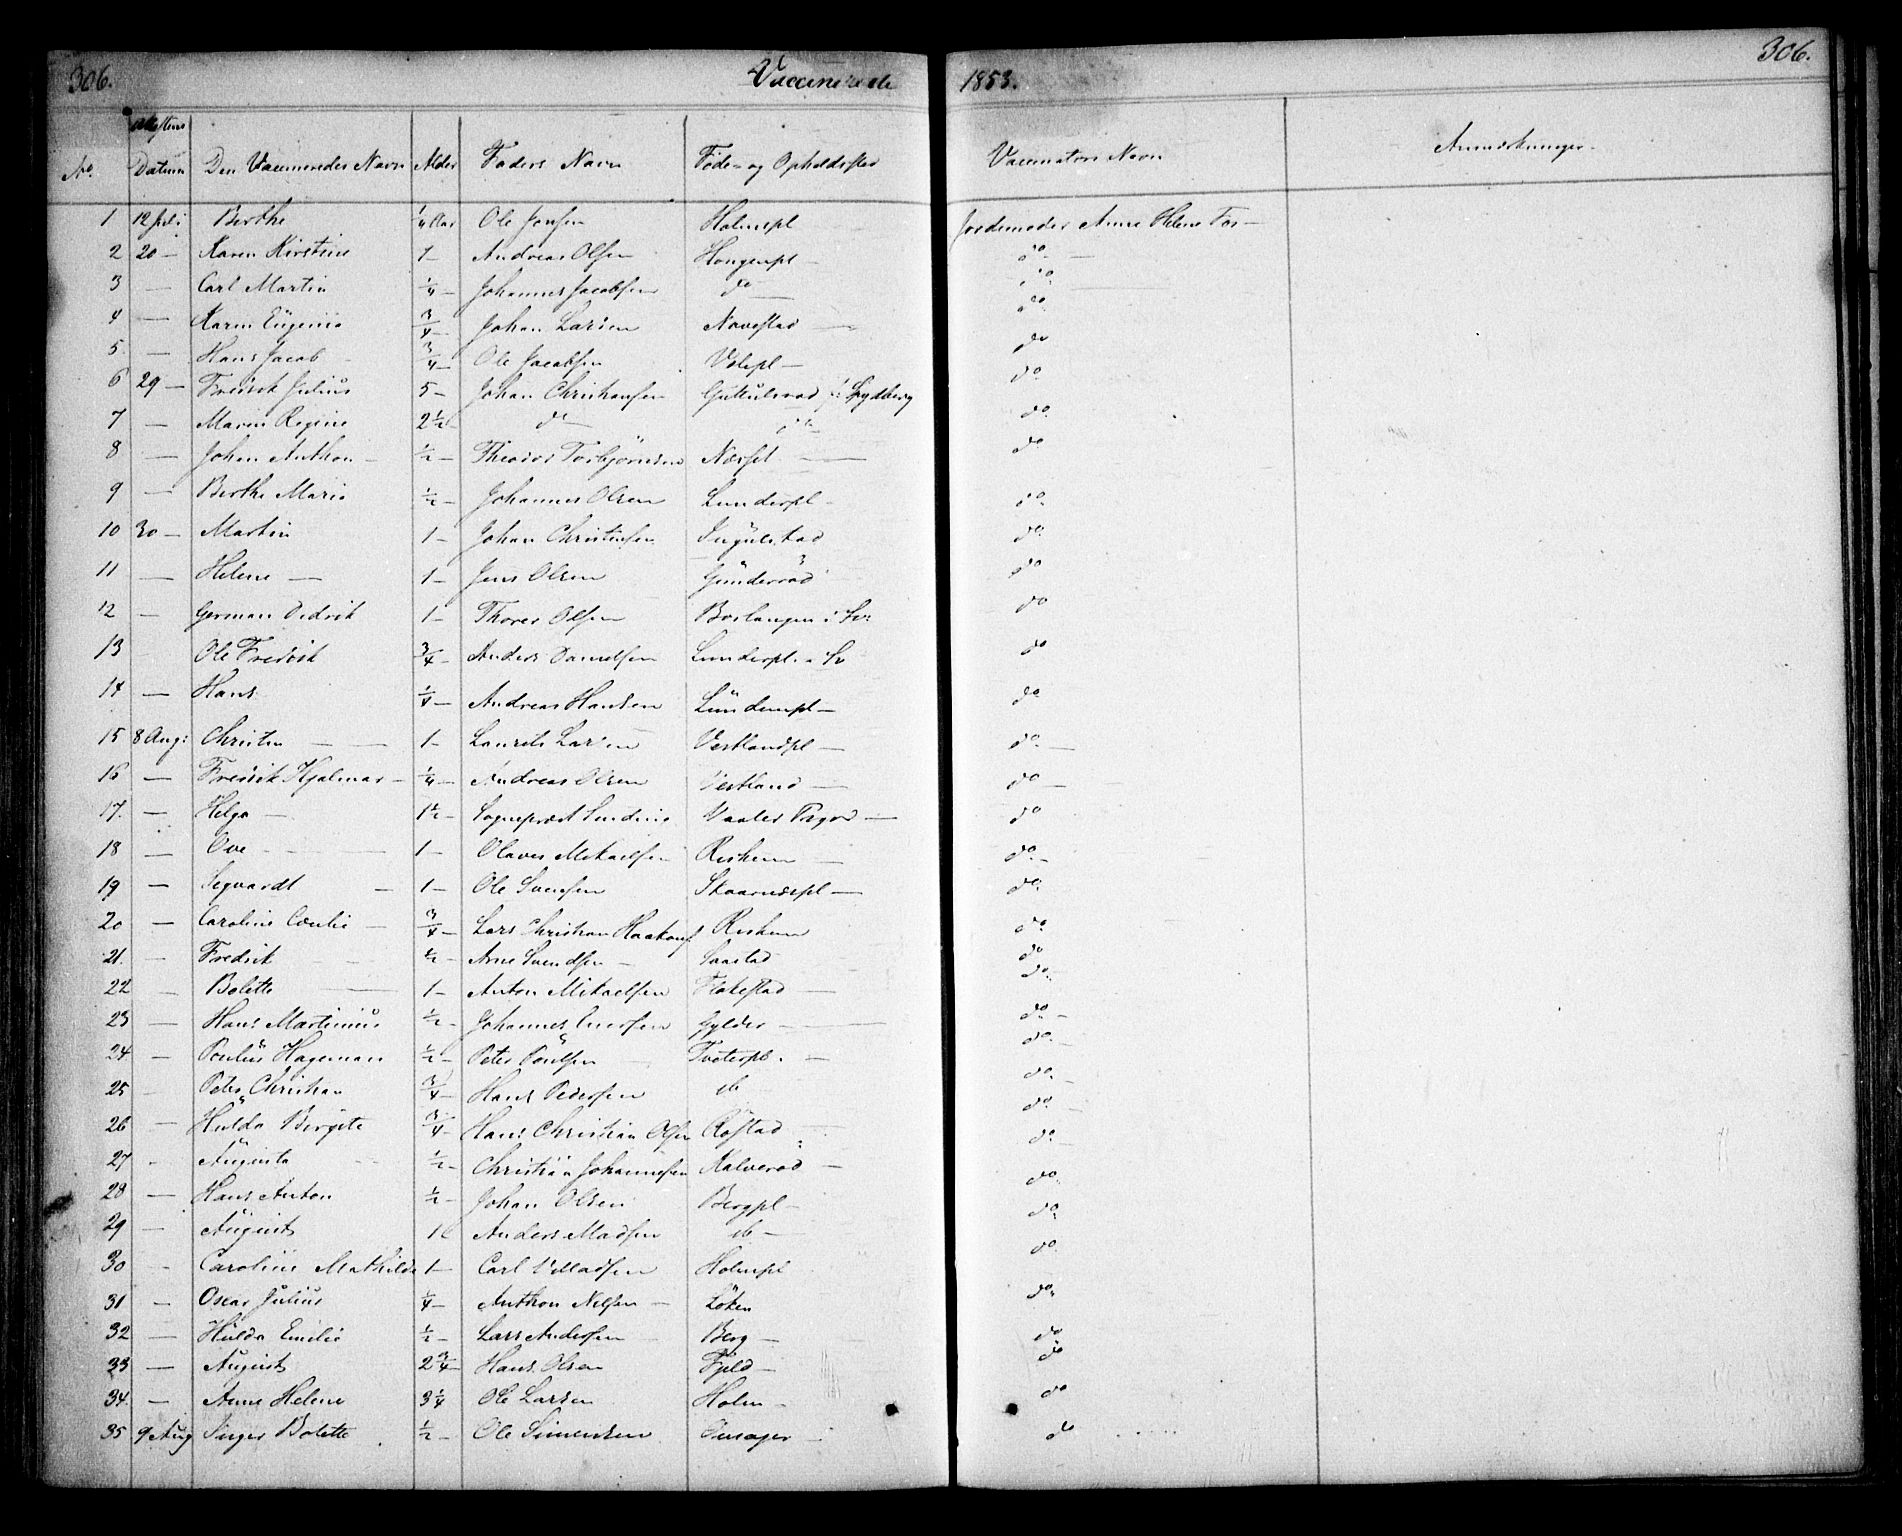 306. Vaccinerede 1853. 306.
No. Attestens Datum Den Vaccineredes Navn Alder Faders Navn Føde- og Opholdssted Vaccinators Navn Anmærkninger.
1 12 Juli Berthe 1/4 Aar Ole Jensen Holmspl Jordemoder Anne Helene Fos —
2 20 — Karen Kirstine 1 Andreas Olsen Hougenpl — do
3 — Carl Martin 1/4 — Johannes Jacobsen do do
4 — Karen Eugenia 3/4 — Johan Larsen Navestad — do
5. — Hans Jacob 3/4 — Ole Jacobsen — do
6 29 — Fredrik Julius 5 — Johan Christiansen Guttulsrød i Spydberg do
7 — Maren Regine 2 1/2 do do do
8 — Johan Anthon — 1/2 — Theodor Torbjørnsen Næsset — do
9 — Berthe Maria 1/2 — Johannes Olsen Lunderspl — do
10 30 — Martin 1 — Johan Christensen Ingulstad do
11 — Helene — 1 — Jens Olsen Gunderød do
12 — German Didrik 1 — Thorer Olsen do
13 Ole Fredrik 3/4 — Anders Danielsen Lunderspl. do
14 — Hans 1/4 — Andreas Hansen do
15 8 Aug: Christen — 1 — Laurits Larsen Vestlandpl — do —
16 — Fredrik Hjalmar — 1/4 — Andreas Olsen Vestland — do —
17. — Helga — 1 1/2 — Sogneprest Sinding Vaaler Prgd — do
18 — Ove — 1 — Olaves Mikaelsen Reskem — do —
19 — Segvardt — 1 — Ole Svensen Skaarnespl — do
20 — Caroline — 3/4 — Lars Christian Haakons Reskem do
21. — Fredrik 1/2 — Arne Svendsen — Saastad do
22 — Bolette — 1 — Anton Mikaelsen Flakestad — do
23 — Hans Martinius 1/2 — Johannes Iversen Gylder — do —
24 — Poulus Hageman 1/2 — Peter Poulsen Tveterpl. — do
25 — Peter Christian 3/4 — Hans Pedersen do do
26 — Hulda Birgite 3/4 — Hans Christian Olsen Røstad do
27 — Augusta 1/2 — Christian Johannesen Kalverød — do —
28 — Hans Anton 1/2 — Johan Olsen Bergpl — do
29 — August 1 Anders Madsen do — do
30 — Caroline Mathilde 1 — Carl Holmpl do
31 — Oscar Julius 1/4 — Anthon Nilsen — Løken do
32 — Hulda Emilie 1/2 — Lars Andersen Berg — do
33 — August 2 3/4 — Hans Olsen Fjeld — do
34. — Anne Helene 3 1/4 Ole Larsen Holm — do
35 9 Aug Inger Bolette 1/2 — Ole Simensen do